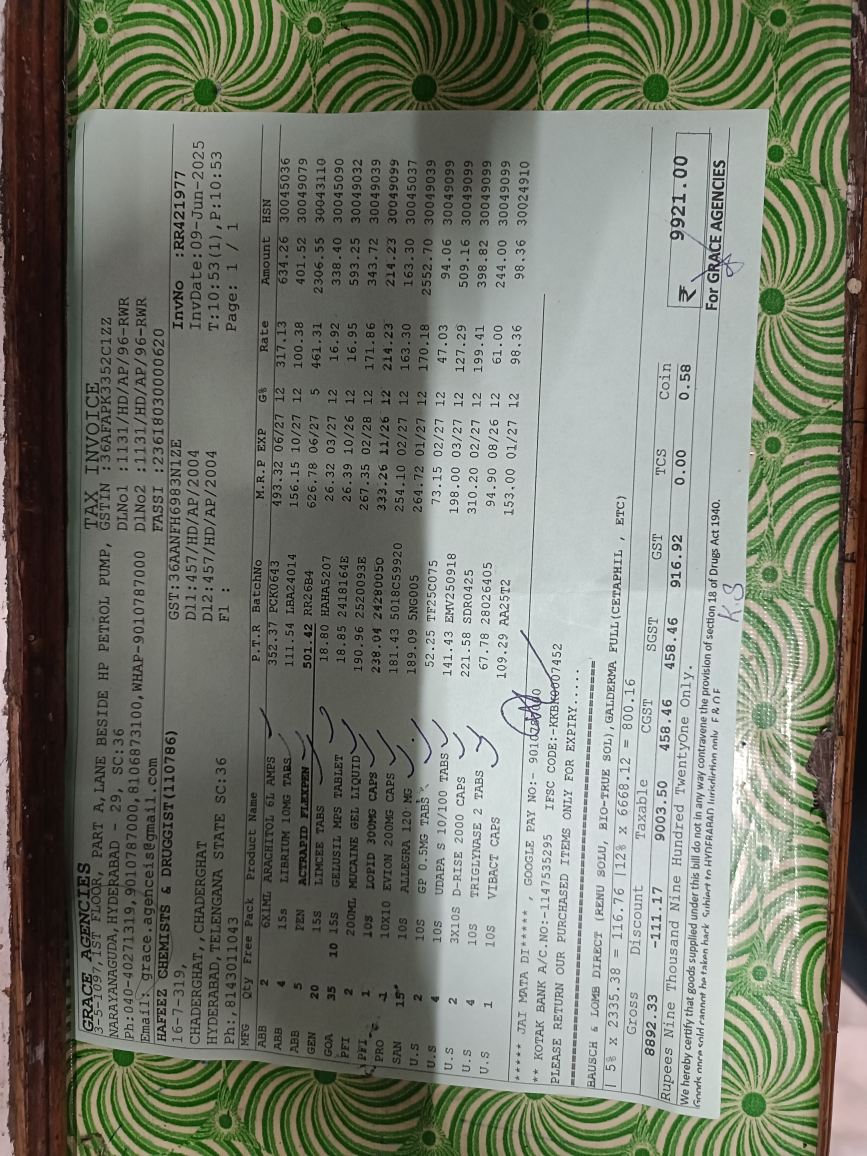 GRACE AGENCIES TAX INVOICE
3-5-1097,1ST FLOOR, PART A,LANE BESIDE HP PETROL PUMP, GSTIN :36AFAPK3352C1ZZ
NARAYANAGUDA,HYDERABAD - 29, SC:36 DLNo1 :1131/HD/AP/96-RWR
Ph:040-40271319,9010787000,8106873100,WHAP-9010787000 DLNo2 :1131/HD/AP/96-RWR
Email: grace.agenceis@gmail.com FASSI :23618030000620
HAFEEZ CHEMISTS & DRUGGIST(110786) GST:36AANFH6983N1ZE InvNo :RR421977
16-7-319, D11:457/HD/AP/2004 InvDate:09-Jun-2025
CHADERGHAT,,CHADERGHAT D12:457/HD/AP/2004 T:10:53(1),P:10:53
HYDERABAD,TELENGANA STATE SC:36 Fl : Page: 1 / 1
Ph:,8143011043
MFG Qty Free Pack Product Name P.T.R BatchNo M.R.P EXP G% Rate Amount HSN
ABB 2 6X1ML ARACHITOL 6L AMPS 352.37 PCK0643 493.32 06/27 12 317.13 634.26 30045036
ABB 4 15s LIBRIUM 10MG TABS 111.54 LBA24014 156.15 10/27 12 100.38 401.52 30049079
ABB 5 PEN ACTRAPID FLEXPEN 501.42 RR26B4 626.78 06/27 5 461.31 2306.55 30043110
GEN 20 15s LIMCEE TABS 18.80 HAHA5207 26.32 03/27 12 16.92 338.40 30045090
GOA 35 10 15s GELUSIL MPS TABLET 18.85 2418164E 26.39 10/26 12 16.95 593.25 30049032
PFI 2 200ML MUCAINE GEL LIQUID 190.96 2520093E 267.35 02/28 12 171.86 343.72 30049039
PFI 1 10S LOPID 300MG CAPS 238.04 24280050 333.26 11/26 12 214.23 214.23 30049099
PRO 1 10X10 EVION 200MG CAPS 181.43 5018C59920 254.10 02/27 12 163.30 163.30 30045037
SAN 15 10S ALLEGRA 120 MG 189.09 5NG005 264.72 01/27 12 170.18 2552.70 30049039
U.S 2 10S GP 0.5MG TABS 52.25 TF25C075 73.15 02/27 12 47.03 94.06 30049099
U.S 4 10S UDAPA S 10/100 TABS 141.43 EMV250918 198.00 03/27 12 127.29 509.16 30049099
U.S 2 3X10S D-RISE 2000 CAPS 221.58 SDR0425 310.20 02/27 12 199.41 398.82 30049099
U.S 4 10S TRIGLYNASE 2 TABS 67.78 28026405 94.90 08/26 12 61.00 244.00 30049099
U.S 1 10S VIBACT CAPS 109.29 AA25T2 153.00 01/27 12 98.36 98.36 30024910
***** JAI MATA DI***** , GOOGLE PAY NO:-
** KOTAK BANK A/C.NO:-1147535295 IFSC CODE:-KKBK0007452
PLEASE RETURN OUR PURCHASED ITEMS ONLY FOR EXPIRY.....
BAUSCH & LOMB DIRECT (RENU SOLU, BIO-TRUE SOL),GALDERMA FULL(CETAPHIL , ETC)
| 5% x 2335.38 = 116.76 |12% x 6668.12 = 800.16
Gross Discount Taxable CGST SGST GST TCS Coin
8892.33 -111.17 9003.50 458.46 458.46 916.92 0.00 0.58 ₹ 9921.00
Rupees Nine Thousand Nine Hundred TwentyOne Only.
We hereby certify that goods supplied under this bill do not in any way contravene the provision of section 18 of Drugs Act 1940. For GRACE AGENCIES
Goods once sold cannot be taken back Subject to HYDERABAD Jurisdiction only E & O E